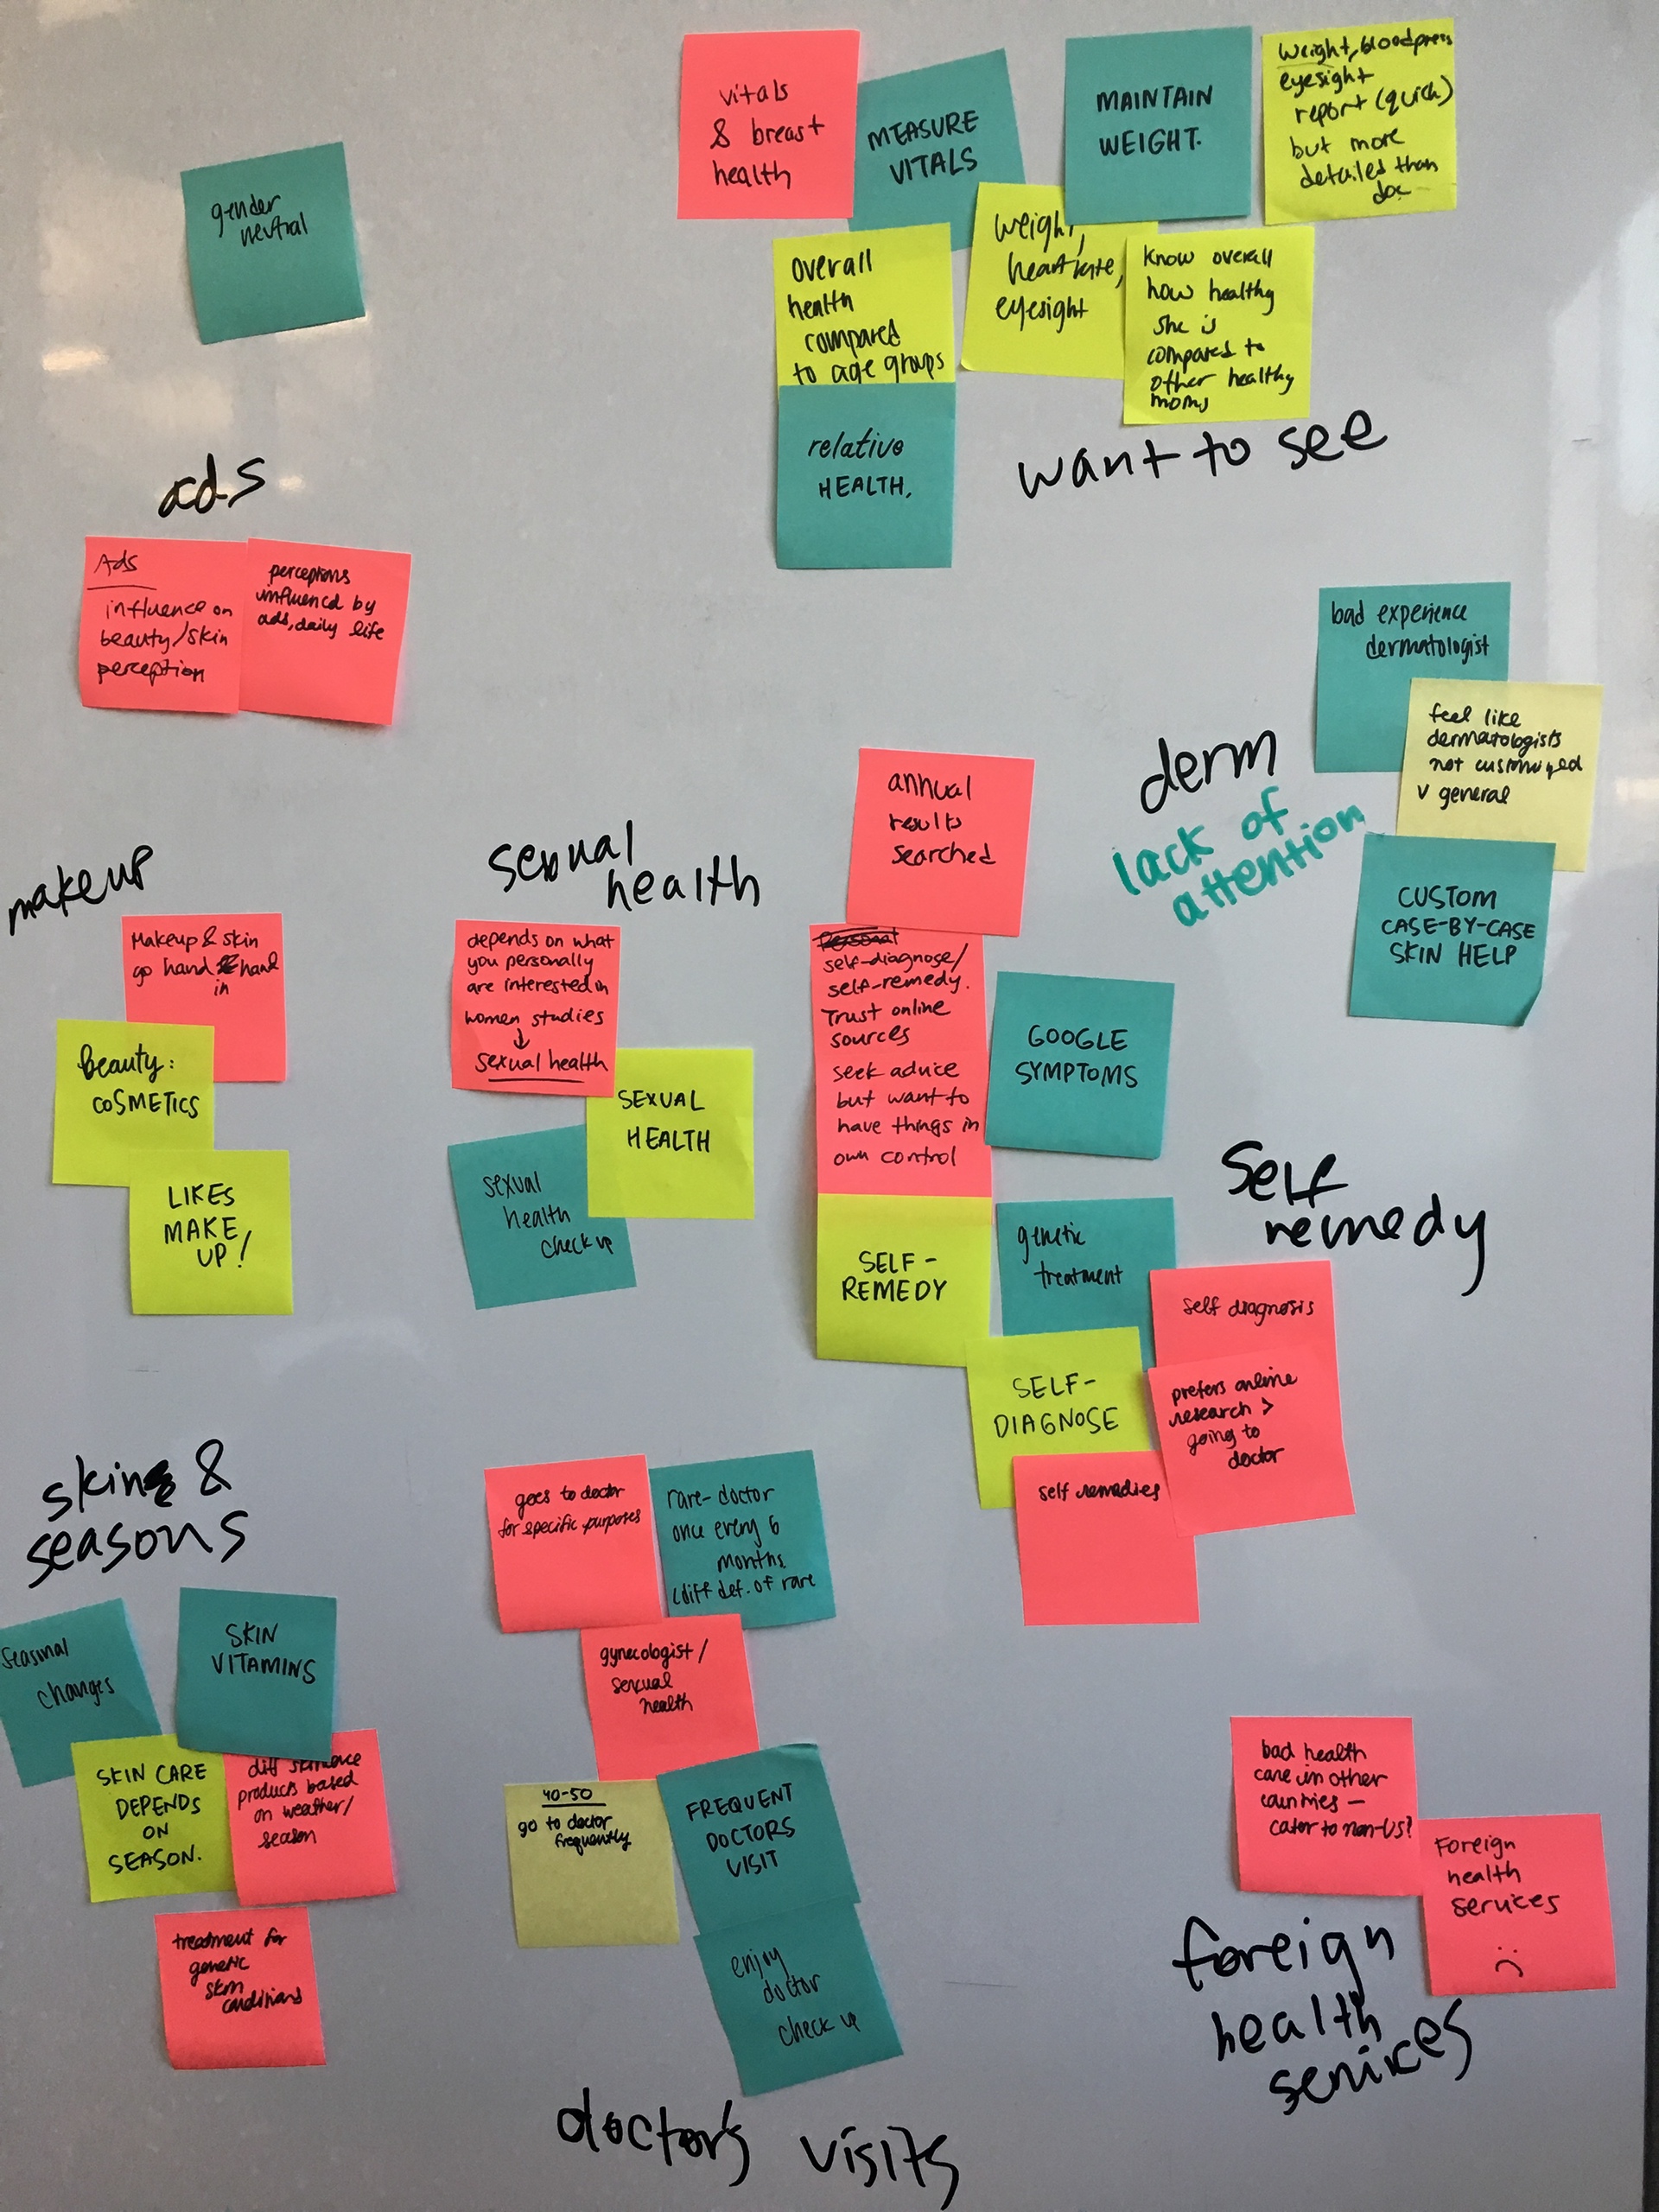 vitals
& breast
health
MEASURE
VITALS
MAINTAIN
WEIGHT.
weight, bloodpress
eyesight
report (quick)
but more
detailed than
doc
gender
neutral
overall
health
compared
to age groups
weight,
heart rate,
eyesight
know overall
how healthy
she is
compared to
other healthy
moms
relative
HEALTH.
want to see
ads
Ads
influence on
beauty/skin
perception
perceptions
influenced by
ads, daily life
bad experience
dermatologist
feel like
dermatologists
not customized
v general
CUSTOM
CASE-BY-CASE
SKIN HELP
derm
lack of
attention
makeup
Makeup & skin
go hand & hand
in
beauty:
COSMETICS
LIKES
MAKE
UP!
sexual
health
depends on what
you personally
are interested in
women studies
↓
sexual health
SEXUAL
HEALTH
sexual
health
check up
annual
results
searched
Personal
self-diagnose/
self-remedy.
Trust online
sources
seek advice
but want to
have things in
own control
GOOGLE
SYMPTOMS
self
remedy
SELF-
REMEDY
genetic
treatment
self diagnosis
SELF-
DIAGNOSE
prefers online
research >
going to
doctor
self remedies
skin &
seasons
seasonal
changes
SKIN
VITAMINS
SKIN CARE
DEPENDS
ON
SEASON.
diff skincare
products based
on weather/
season
treatment for
genetic
skin
conditions
goes to doctor
for specific purposes
rare- doctor
once every 6
months
(diff def. of rare
gynecologist/
sexual
health
40-50
go to doctor
frequently
FREQUENT
DOCTORS
VISIT
enjoy
doctor
check up
doctors visits
bad health
care in other
countries —
cater to non-US?
Foreign
health
services
:(
foreign
health
services